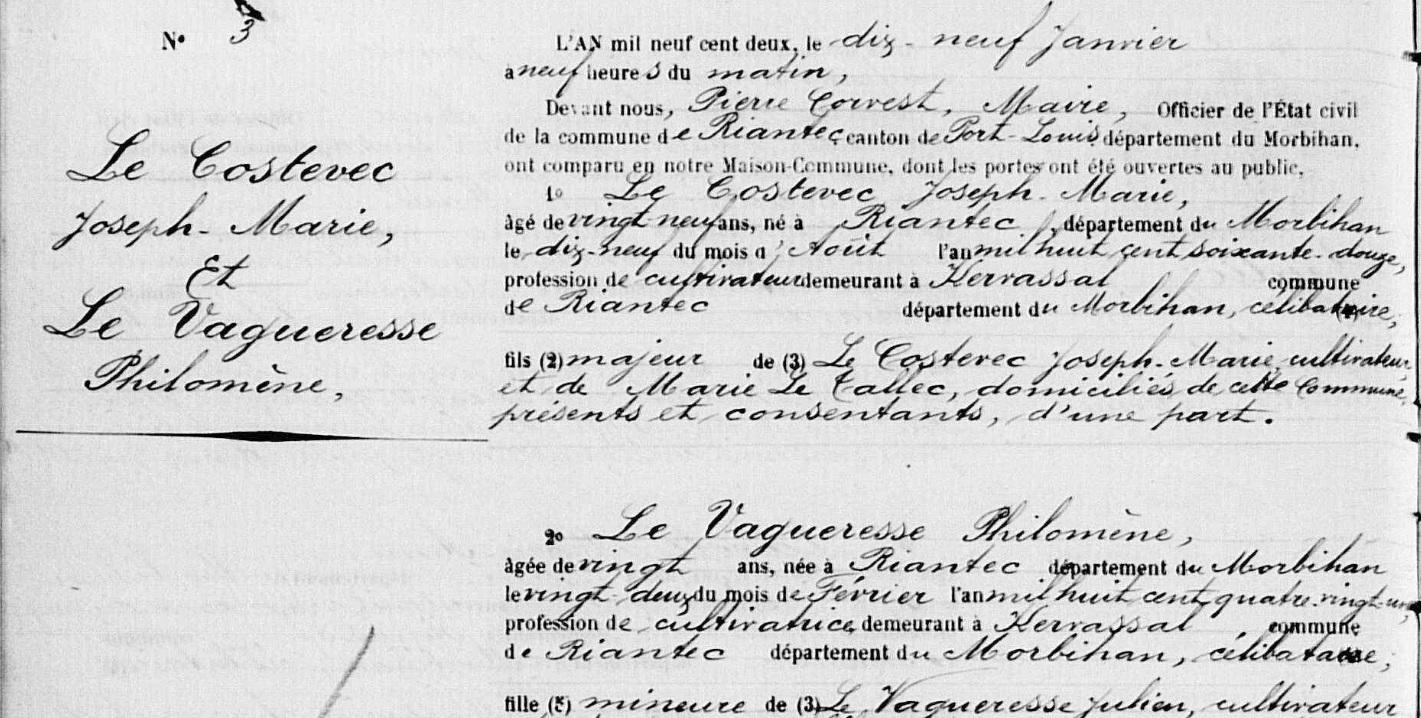 N° 3
Le Costevec
Joseph-Marie,
Et
Le Vagueresse
Philomène,
L'AN mil neuf cent deux, le dix-neuf Janvier
à neuf heures du matin,
Devant nous, Pierre Corvest, Maire, Officier de l'État civil
de la commune de Riantec canton de Port-Louis département du Morbihan,
ont comparu en notre Maison-Commune, dont les portes ont été ouvertes au public,
1° Le Costevec Joseph-Marie,
âgé de vingt neuf ans, né à Riantec, département du Morbihan
le dix-neuf du mois d'Août l'an mil huit cent soixante-douze,
profession de cultivateur demeurant à Kervassal commune
de Riantec département du Morbihan, célibataire,
fils (2) majeur de (3) Le Costevec Joseph-Marie, cultivateur,
et de Marie Le Tallec, domiciliés de cette Commune,
présents et consentants, d'une part.
2° Le Vagueresse Philomène,
âgée de vingt ans, née à Riantec département du Morbihan
le vingt-deux du mois de Février l'an mil huit cent quatre-vingt-un,
profession de cultivatrice demeurant à Kervassal, commune
de Riantec département du Morbihan, célibataire,
fille (5) mineure de (3) Le Vagueresse Julien, cultivateur